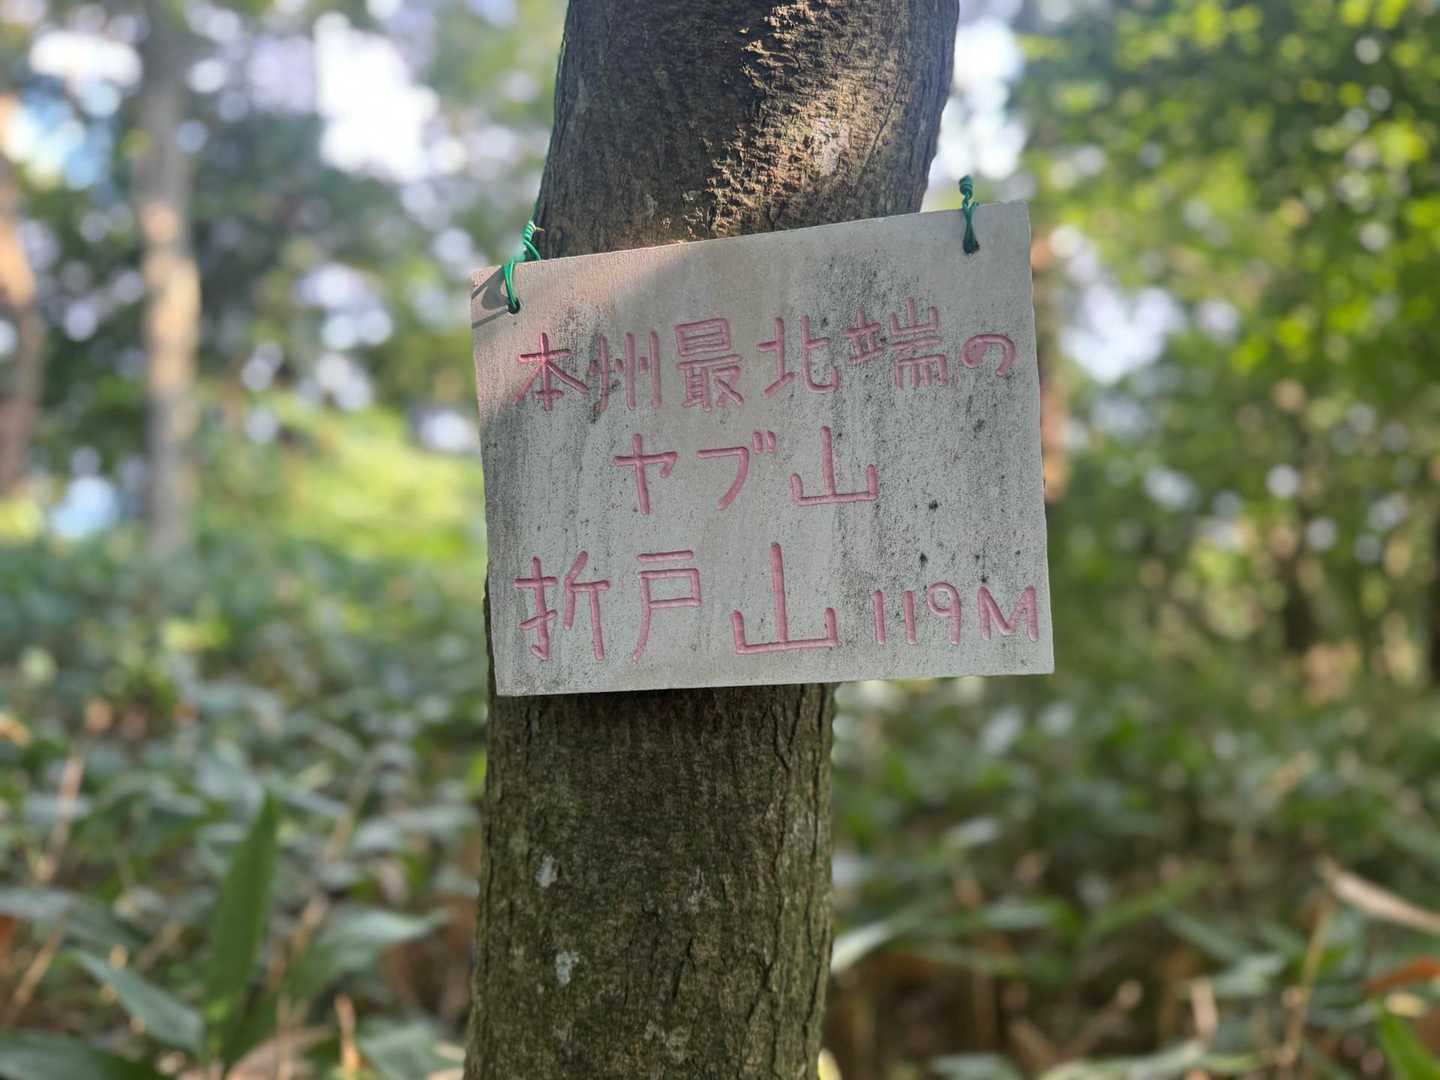 本州最北端の
ヤブ山
折戸山 119M